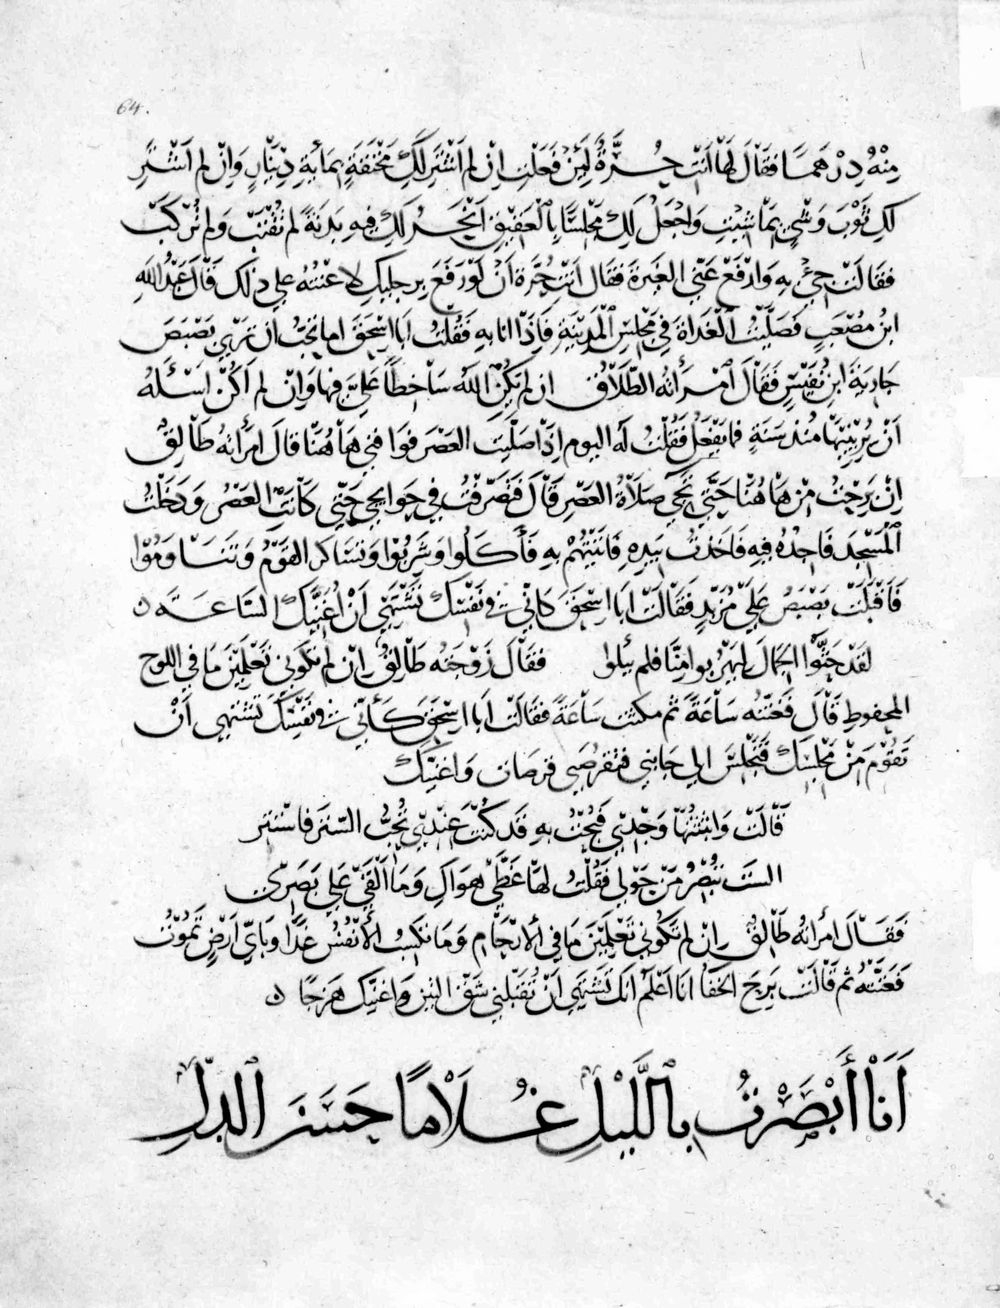 64.
مِنْهُ دِرْهَمًا فَقَالَ لَهَا اَنْتِ حُرَّةٌ لَئِنْ فَعَلْتِ اِنْ لم اَشْتَرِ لَكِ مَخْنَقَةٍ بِمائَةِ دِيْنَارٍ وَاِنْ لم اَشْتَرِ
لَكِ ثَوْبَ وَشْيٍ بِمَا شِيْتِ وَاجْعَلُ لَكِ مَجْلِسًا بِالْعَقِيْقِ اَنْحَرُ لَكِ فِيهِ بَدَنَةً لم تُقْتَبْ ولم تُرْكَبْ
فقَالَتْ جِئْ بِهِ وَارْفَعْ عَنّي الغَيرَةَ فقَال اَنْتِ حُرّة اَنْ لَوْ رَفَعَ بِرجليكِ لاعَنْتُهُ على ذلك قَالَ عَبْدُ الله
ابنُ مُصْعَبٍ فَصَلَّيْتُ الْغَدَاةَ في مَجْلِسِ الْمَدِيْنَةِ فَاِذَا انا بهِ فَقُلْتُ اَبَا اِسْحَقَ اما تُحِبُّ ان تَرَى بَصْبَصَ
جَارِيَةَ ابنُ نُفَيْسٍ فَقَالَ اْمْرَأَتُه الطَّلَاقُ ان لم يَكُنِ اللّهُ سَاخِطًا عَلَيَّ فيها وَاِنْ لم اَكُنْ اَسْئَلُهُ
اَنْ يُرِيْنِيْهَا مُنْذ سَنَةٍ فما يَفْعَلُ فَقُلْتُ لَه اليوم اِذَا صَلّيْتَ العَصْرَ فَوَافِنِي هَاهُنَا قَالَ امرأتهُ طَالِقٌ
اِنْ بَرِحْتُ مِنْ هَاهُنَا حَتَّى تَجِيَ صَلَاةُ العَصْرِ قَالَ فَتَصَرَّفْتُ في حَوَائجي حَتّى كَانَتْ العَصْرُ وَدَخَلْتُ
الْمَسْجِدَ فَاَجِدُهُ فِيهِ فَاَخَذْتُ بِيَدِهِ فَاتَيْتُهُمْ بِهِ فَأَكَلُوا وَشَرِبُوْا وَتَسَاكَر القَوْمُ وَتَنَاوَمُوْا
فَاَقْبَلَتْ بَصْبَصُ عَلى مُزَبّدٍ فَقَالَتْ اَبَا اِسْحَقَ كَانّي في نَفْسِكَ تَشْتَهِيْ اَنْ اُغَنِّيَكَ السَّاعَةَ ٥
لقَدْ حَثُّوْا الجِمَالَ لِيَهْرُبوا مِنَّا فلم يئلوا فقَالَ زَوْجَتُه طَالِقٌ اِن لم تكُوني تَعْلَمِيْنَ مَا في اللوح
المحفوظِ قَالَ فَغَنّته سَاعَةً ثم مكثت سَاعَةً فقَالَتْ اَبا اِسْحَقَ كَأنّي في نَفْسِكَ تَشْتهي اَنْ
تَقُوْمَ مِنْ مَجْلِسِكَ فَتَجْلِسَ الى جَانِبي فتَقرُصَنِي قرصات وَاغنيْكَ
قَالَتْ وَابْثَثْتُهَا وَجْدِيْ فَبُحْتُ بِهِ قَد كُنْتَ عِنْدِيْ تُحِبُّ السِّتْرَ فَاسْتَتِرِ
السْتَ تُبْصِرُ مَنْ حَوْلي فَقُلْتُ لهَا غَطَّى هَوَاكِ وَمَا اَلقَىْ عَلى بَصَرِيْ
فَقَالَ امرأته طَالِقٌ اِنْ لم تكُوْنِيْ تَعْلَمِيْنَ مَا في الأرْحَامِ وَمَا تكْسِبُ الأنْفُسُ غَدًا وَبِايّ اَرْضٍ تَمُوْتُ
فَغَنَّتْهُ ثم قَالَتْ بَرِحَ الخَفَا اَنا اَعْلَمُ انك تَشْتَهِي اَنْ تُقَبّلَني شَقّ التين وَاغنّيكَ هَزَجًا ٥
اَنَا أَبْصَرْتُ بِاللَّيْلِ غُلَامًا حَسَنَ الدَلِّ